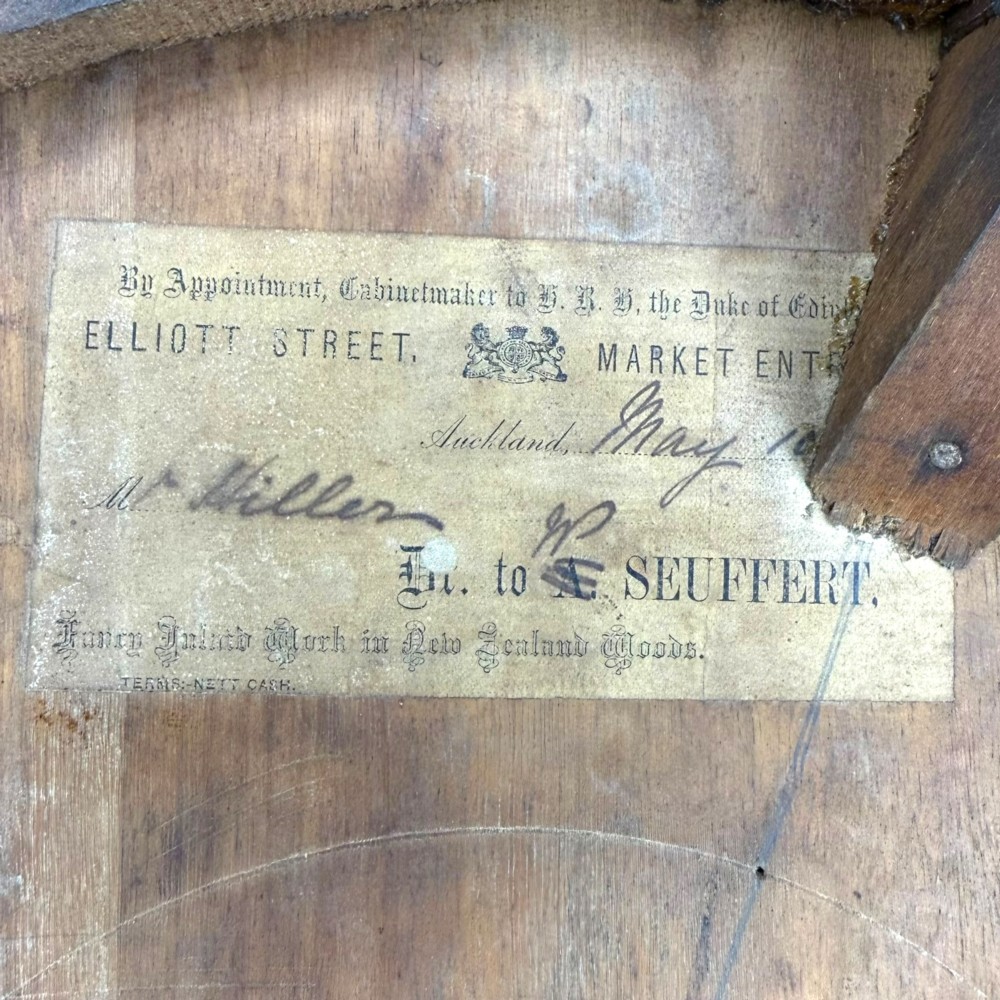 By Appointment, Cabinetmaker to H. R. H, the Duke of Edin
ELLIOTT STREET, MARKET ENT
Auckland, May 10
Mr Hiller
Dr. to W A. SEUFFERT.
Fancy Inlaid Work in New Zealand Woods.
TERMS:-NETT CASH.